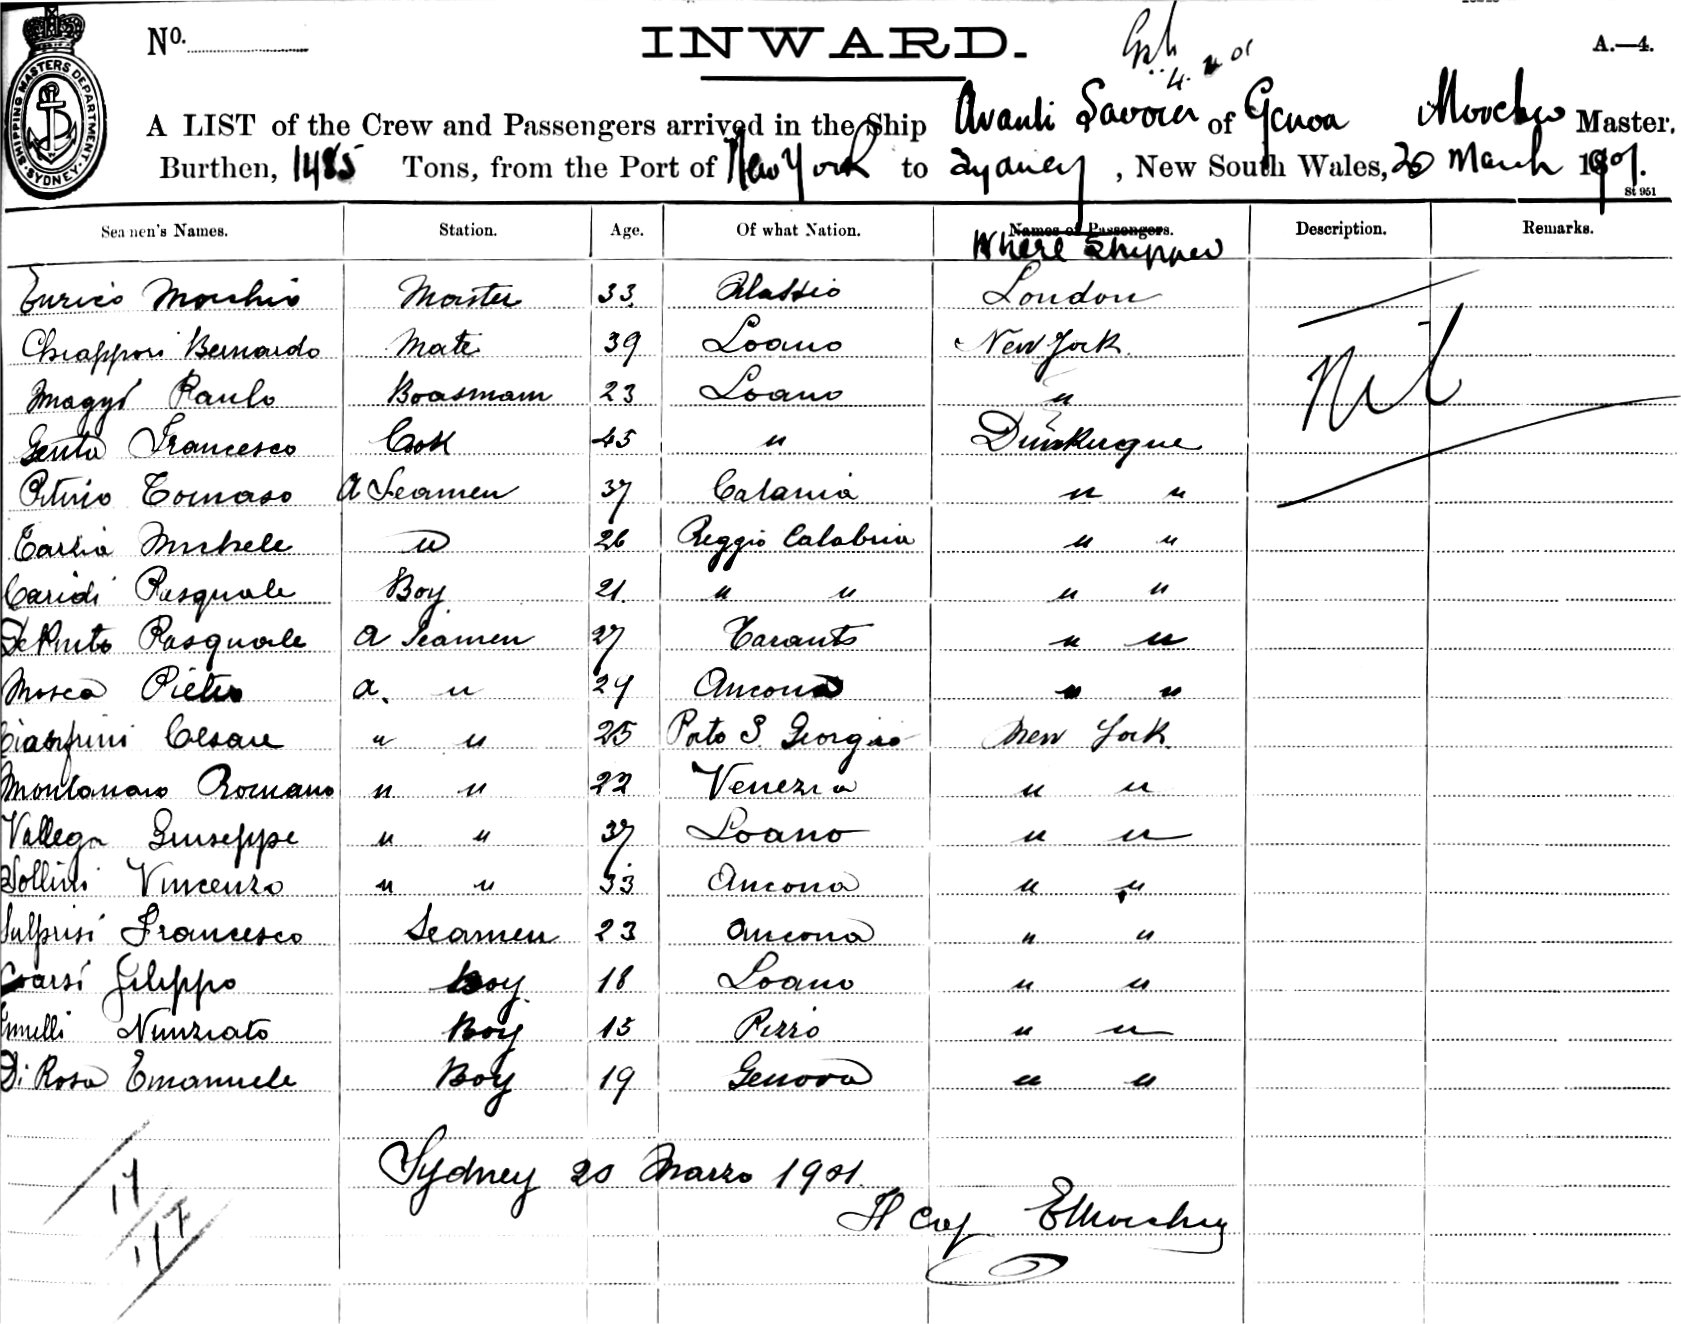 SHIPPING MASTERS DEPARTMENT. SYDNEY.
No. INWARD. A.—4.
A LIST of the Crew and Passengers arrived in the Ship Avanti Savoia of Genoa Master.
Burthen, 1485 Tons, from the Port of New York to Sydney, New South Wales, 20 March 1901.
St 951
Seamen's Names. Station. Age. Of what Nation. Names of Passengers. Description. Remarks.
Where Shipped
Enrico Mocchio Master 33 Alassio London
Chiappori Bernardo Mate 39 Loano New York Nil
Maggi Paulo Boasmam 23 Loano "
Genta Francesco Cook 45 " Dunkerque
Tomaso A Seamen 37 Catania " "
Michele " 26 Reggio Calabria " "
Caridi Pasquale Boy 21 " " " "
Pasquale A Seamen 27 Taranto " "
Mosca Pietro A. " 29 Ancona " "
Cesare " " 25 Porto S. Giorgio New York
Montanaro Romano " " 22 Venezia " "
Vallega Giuseppe " " 37 Loano " "
Vincenzo " " 33 Ancona " "
Francesco Seamen 23 Ancona " "
Filippo Boy 18 Loano " "
Nunziato Boy 15 Pizzo " "
Di Rosa Emanuele Boy 19 Genova " "
Sydney 20 Marzo 1901.
17
Il Cap